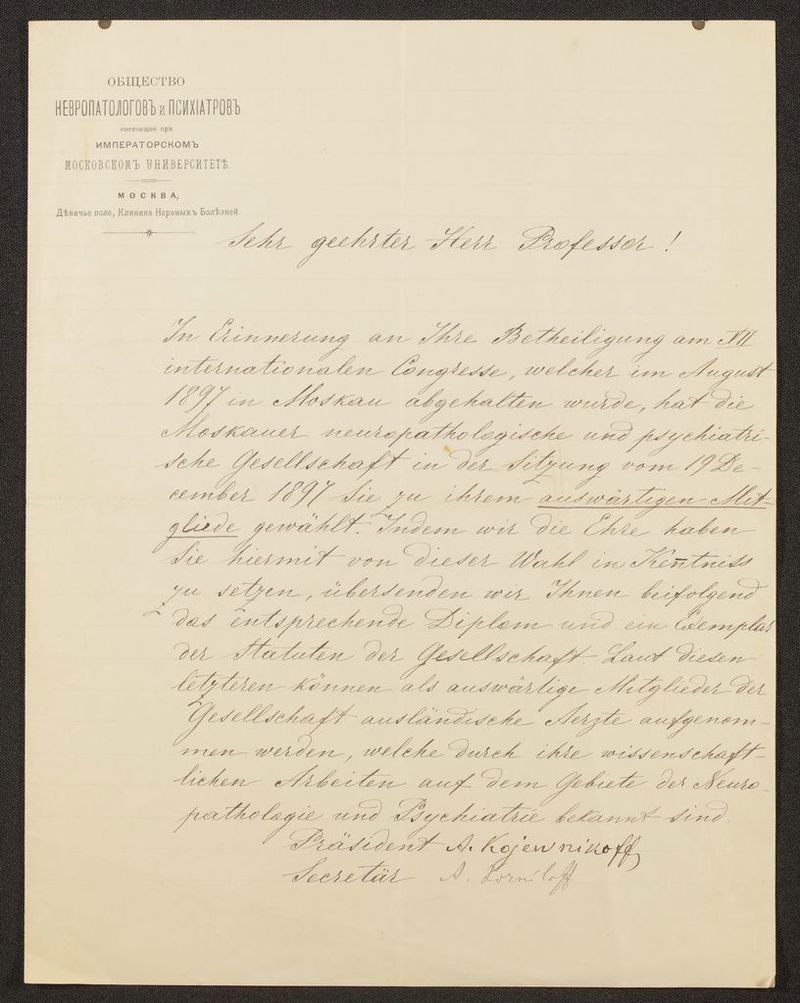 ОБЩЕСТВО
НЕВРОПАТОЛОГОВЪ и ПСИХІАТРОВЪ
состоящее при
ИМПЕРАТОРСКОМЪ
МОСКОВСКОМЪ УНИВЕРСИТЕТѢ.
МОСКВА,
Дѣвичье поле, Клиника Нервныхъ Болѣзней.
Sehr geehrter Herr Professor!
In Erinnerung an Ihre Betheiligung am XII
internationalen Congresse, welcher im August
1897 in Moskau abgehalten wurde, hat die
Moskauer neuropathologische und psychiatri-
sche Gesellschaft in der Sitzung vom 19 De-
cember 1897 Sie zu ihrem auswärtigen Mit-
gliede gewählt. Indem wir die Ehre haben
Sie hiermit von dieser Wahl in Keñtniss
zu setzen, übersenden wir Ihnen beifolgend
das entsprechende Diplom und ein Exemplar
der Statuten der Gesellschaft. Laut diesen
letzteren können als auswärtige Mitglieder der
Gesellschaft ausländische Aerzte aufgenom-
men werden, welche durch ihre wissenschaft-
lichen Arbeiten auf dem Gebiete der Neuro-
pathologie und Psychiatrie bekannt sind.
Präsident A. Kojewnikoff
Secretär A. Korniloff